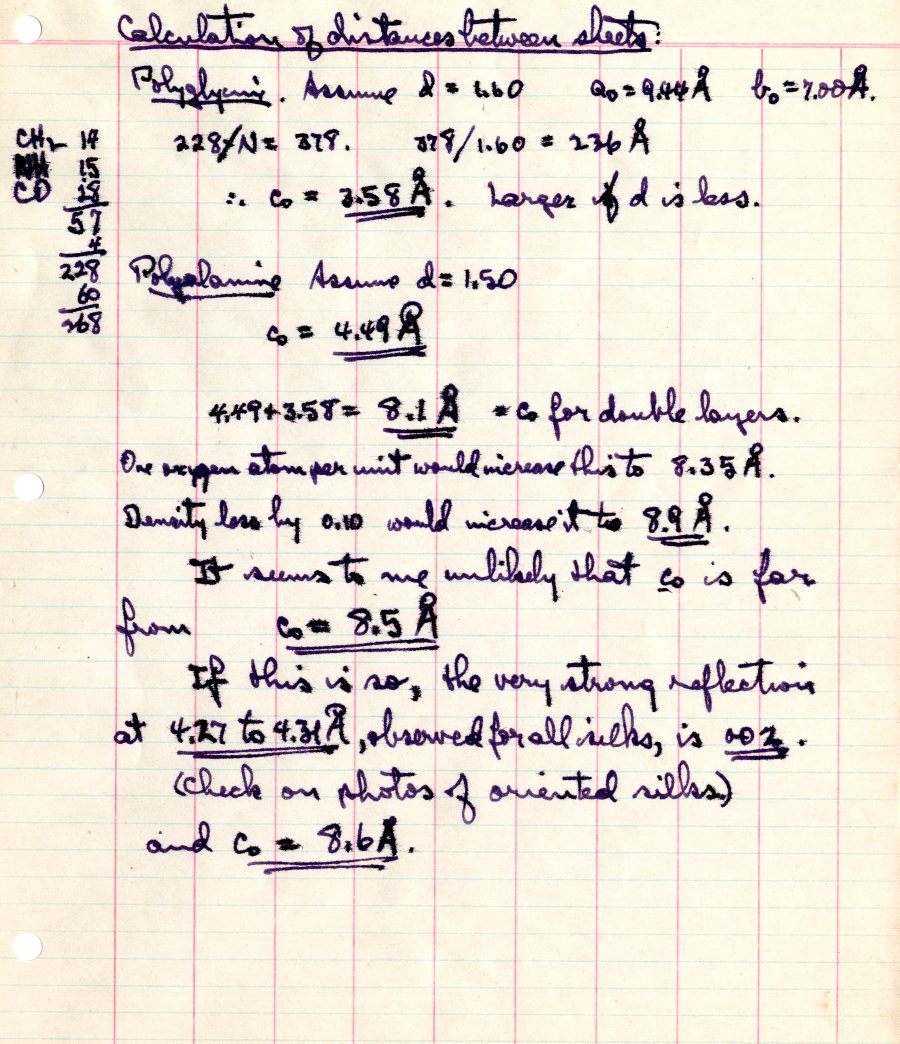 Calculation of distances between sheets:
Polyglycine. Assume d = 1.60 a₀ = 9.44 Å b₀ = 7.00 Å.
228/N = 378. 378/1.60 = 236 Å
∴ c₀ = 3.58 Å. Larger if d is less.
CH₂ 14
NH 15
CO 28
57
4
228
60
268
Polyalanine Assume d = 1.50
c₀ = 4.49 Å
4.49 + 3.58 = 8.1 Å = c₀ for double layers.
One oxygen atom per unit would increase this to 8.35 Å.
Density less by 0.10 would increase it to 8.9 Å.
It seems to me unlikely that c₀ is far
from c₀ = 8.5 Å
If this is so, the very strong reflection
at 4.27 to 4.31 Å, observed for all silks, is 002.
(Check on photos of oriented silks.)
and c₀ = 8.6 Å.